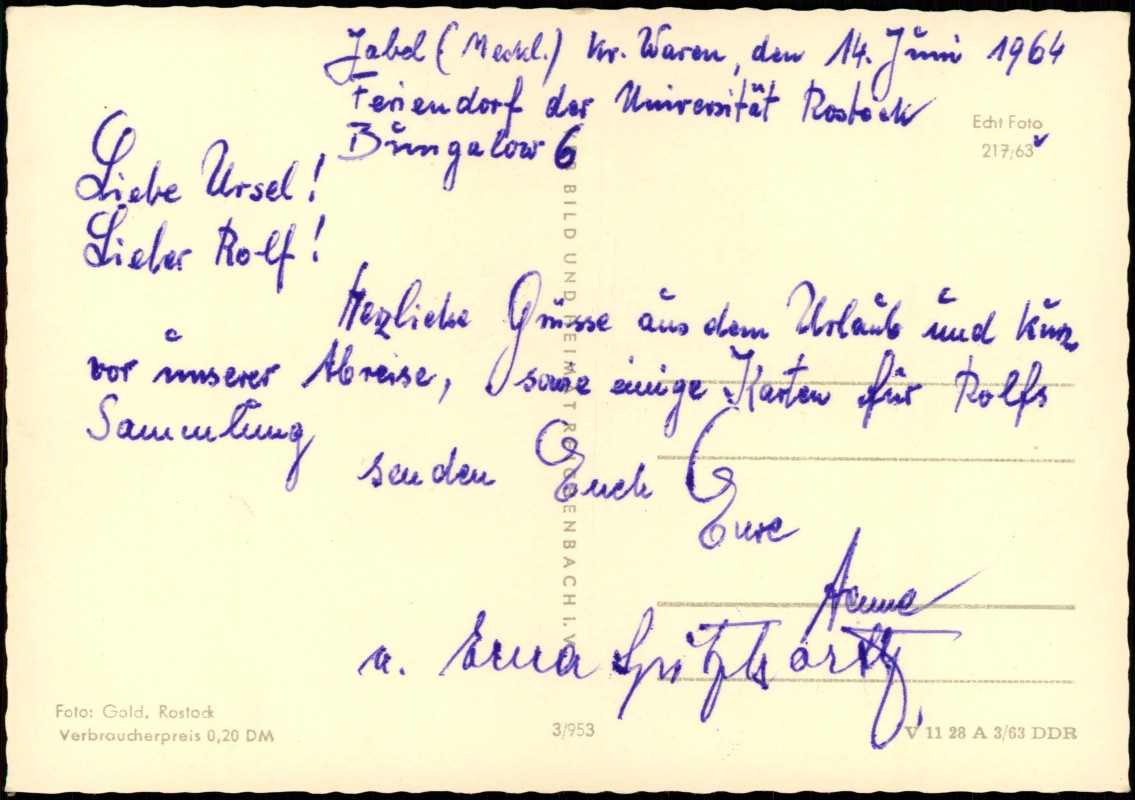 Jabel (Meckl.) Kr. Waren, den 14. Juni 1964
Feriendorf der Universität Rostock
Bungalow 6
Echt Foto
217/63
Liebe Ursel!
Lieber Rolf!
Herzliche Grüsse aus dem Urlaub und kurz
vor unserer Abreise, sowie einige Karten für Rolfs
Sammlung
senden Euch
Eure
u. Erna
BILD UND HEIMAT REICHENBACH i. V.
Foto: Gold, Rostock
Verbraucherpreis 0,20 DM
3/953
V 11 28 A 3/63 DDR